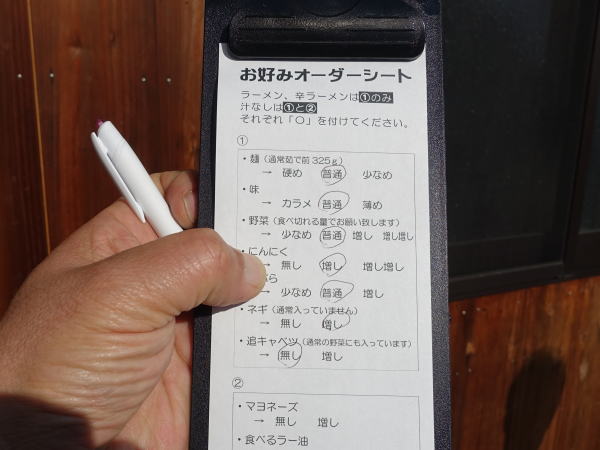 お好みオーダーシート
ラーメン、辛ラーメンは①のみ
汁なしは①と②
それぞれ「〇」を付けてください。
①
・麺（通常茹で前325g）
→ 硬め 普通 少なめ
・味
→ カラメ 普通 薄め
・野菜（食べ切れる量でお願い致します）
→ 少なめ 普通 増し 増し増し
・にんにく
→ 無し 増し 増し増し
ら
→ 少なめ 普通 増し
・ネギ（通常入っていません）
→ 無し 増し
・追キャベツ（通常の野菜にも入っています）
→ 無し 増し
②
・マヨネーズ
→ 無し 増し
・食べるラー油